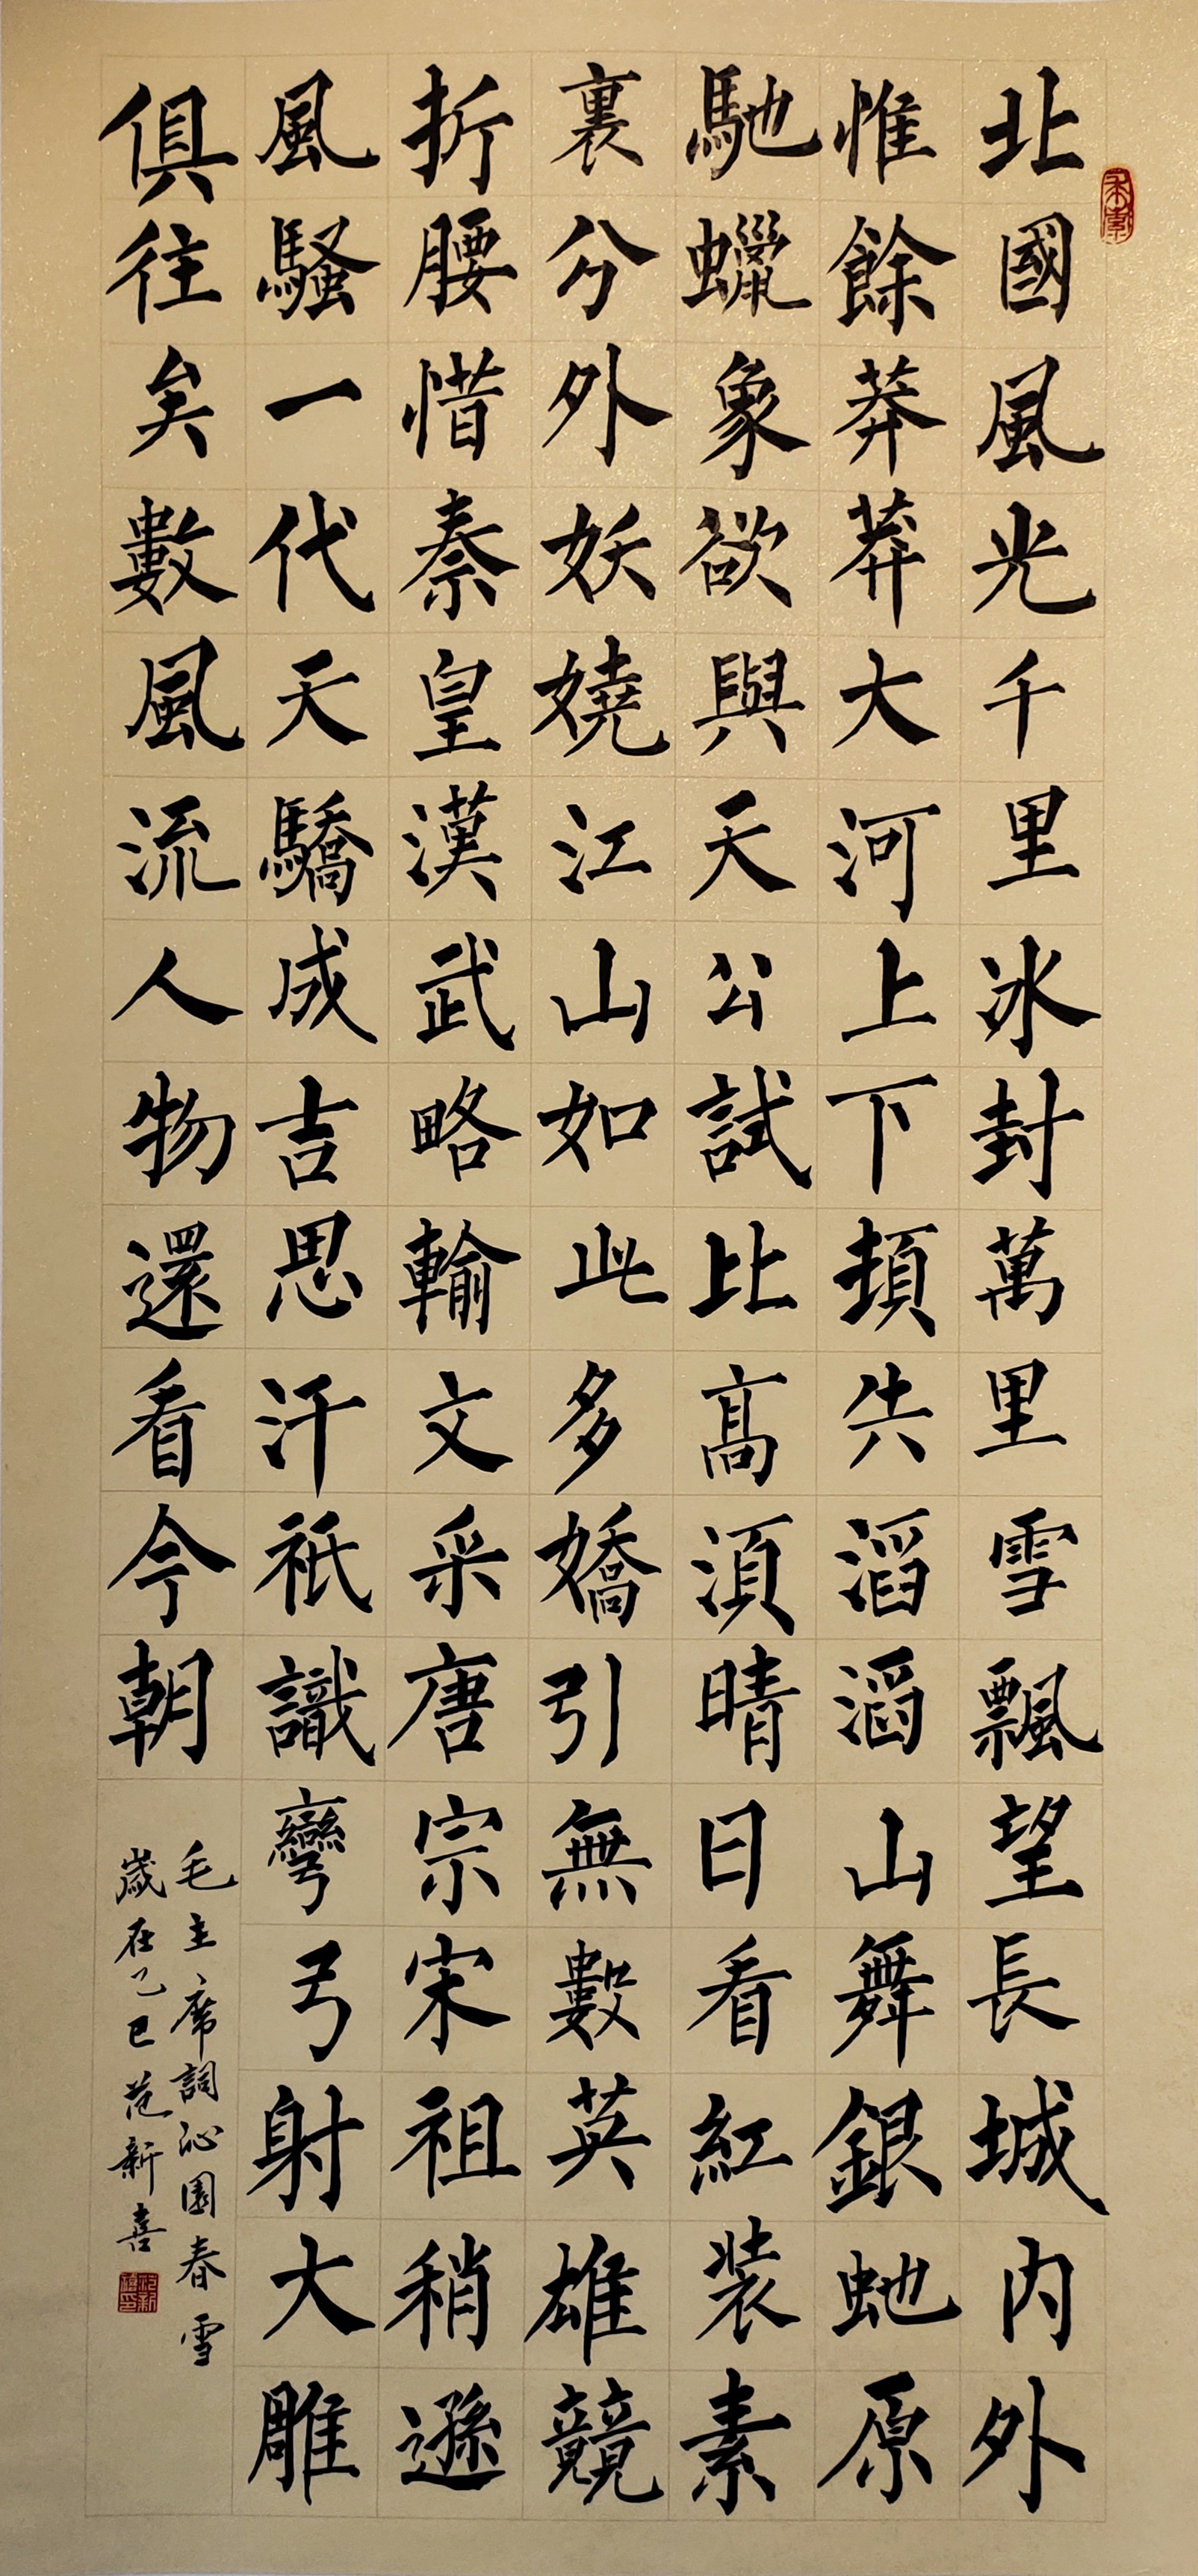 北國風光千里冰封萬里雪飄望長城內外
惟餘莽莽大河上下頓失滔滔山舞銀蛇原
馳蠟象欲與天公試比高須晴日看紅裝素
裏分外妖嬈江山如此多嬌引無數英雄競
折腰惜秦皇漢武略輸文采唐宗宋祖稍遜
風騷一代天驕成吉思汗祇識彎弓射大雕
俱往矣數風流人物還看今朝
毛主席詞沁園春雪
歲在乙巳范新喜